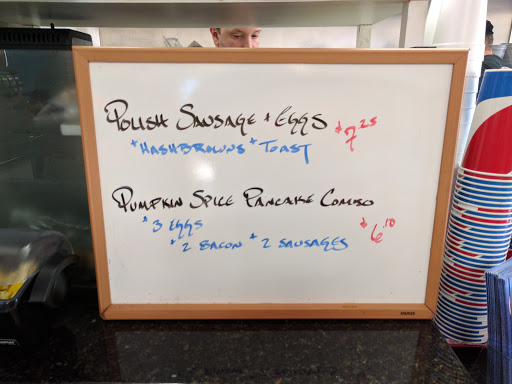 Polish Sausage + Eggs $7.25
*Hashbrowns *Toast
Pumpkin Spice Pancake Combo $6.10
*3 Eggs
*2 Bacon *2 Sausages